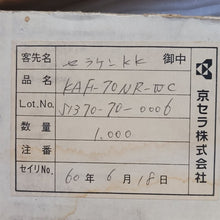 客先名 セラケンKK 御中
品名 KAF-70NR-WC
Lot.No. S1370-70-0006
数量 1.000
注番
セイリNo. 60年6月18日
京セラ株式会社